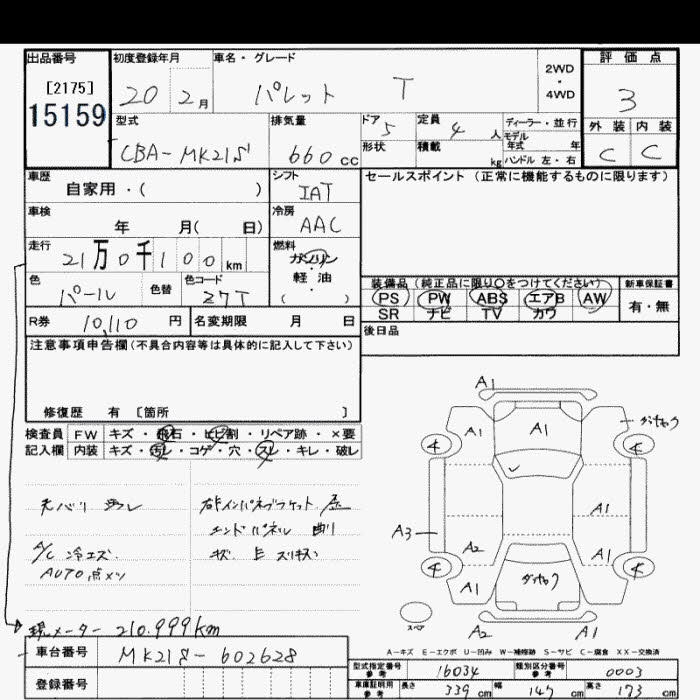 出品番号 初度登録年月 車名・グレード 2WD・4WD 評価点
[2175] 15159 20 2月 パレット T 3
型式 排気量 ドア 5 定員 4人 ディーラー・並行 外装 内装
CBA-MK21S 660cc 形状 積載 kg モデル年式 年 ハンドル 左・右 C C
車歴 自家用・( ) シフト IAT セールスポイント (正常に機能するものに限ります)
車検 年 月( 日) 冷房 AAC
走行 21万0千100km 燃料 ガソリン・軽油 ( )
色 パール 色替 色コード Z7T
装備品 (純正品に限り○をつけてください) 新車保証書
PS PW ABS エアB AW 有・無
SR ナビ TV カワ
R券 10,110円 名変期限 月 日 後日品
注意事項申告欄(不具合内容等は具体的に記入して下さい)
修復歴 有 [箇所 ]
検査員 FW キズ・飛石・ヒビ割・リペア跡・×要
記入欄 内装 キズ・汚レ・コゲ・穴・スレ・キレ・破レ
天バリ 汚レ
エンドパネル
A/C 冷エズ.
AUTO点メツ
現メーター 210.999km
A1
A1 A1 ダッキャク
A3 A1
A2 A1
A1 ダッキャク
スペア A2 A1
A-キズ E-エクボ U-凹み W-補修跡 S-サビ C-腐食 XX-交換済
車台番号 MK21S-602628
型式指定番号 参考 16034 類別区分番号 参考 0003
登録番号 車庫証明用 参考 長さ 339cm 幅 147cm 高さ 173cm